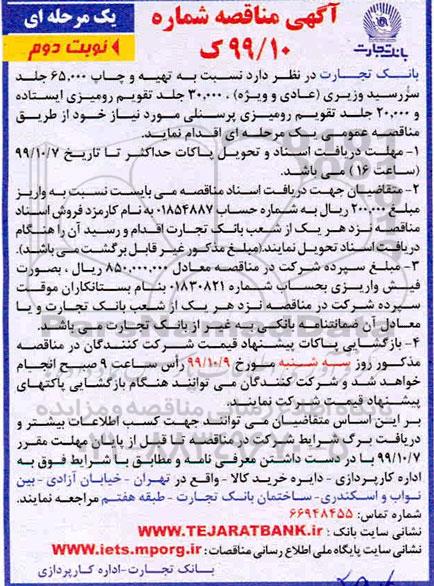 آگهی مناقصه شماره
۹۹/۱۰ ک
یک مرحله ای
نوبت دوم
بانک تجارت
بانک تجارت در نظر دارد نسبت به تهیه و چاپ ۶۵,۰۰۰ جلد
سررسید وزیری (عادی و ویژه) ، ۳۰,۰۰۰ جلد تقویم رومیزی ایستاده
و ۲۰,۰۰۰ جلد تقویم رومیزی پرسنلی مورد نیاز خود از طریق
مناقصه عمومی یک مرحله ای اقدام نماید.
۱- مهلت دریافت اسناد و تحویل پاکات حداکثر تا تاریخ ۹۹/۱۰/۷
(ساعت ۱۶) می باشد.
۲- متقاضیان جهت دریافت اسناد مناقصه می بایست نسبت به واریز
مبلغ ۲۰۰,۰۰۰ ریال به شماره حساب ۰۱۸۵۴۸۸۷ به نام کارمزد فروش اسناد
مناقصه نزد هر یک از شعب بانک تجارت اقدام و رسید آن را هنگام
دریافت اسناد تحویل نمایند.(مبلغ مذکور غیر قابل برگشت می باشد).
۳- مبلغ سپرده شرکت در مناقصه معادل ۸۵۰,۰۰۰,۰۰۰ ریال ، بصورت
فیش واریزی بحساب شماره ۰۱۸۳۰۸۲۱ بنام بستانکاران موقت
سپرده شرکت در مناقصه نزد هر یک از شعب بانک تجارت و یا
معادل آن ضمانتنامه بانکی به غیر از بانک تجارت می باشد.
۴- بازگشایی پاکات پیشنهاد قیمت شرکت کنندگان در مناقصه
مذکور روز سه شنبه مورخ ۹۹/۱۰/۹ رأس ساعت ۹ صبح انجام
خواهد شد و شرکت کنندگان می توانند هنگام بازگشایی پاکتهای
پیشنهاد قیمت شرکت نمایند.
بر این اساس متقاضیان می توانند جهت کسب اطلاعات بیشتر و
دریافت برگ شرایط شرکت در مناقصه تا قبل از پایان مهلت مقرر
۹۹/۱۰/۷ با در دست داشتن معرفی نامه و مطابق با شرایط فوق به
اداره کارپردازی - دایره خرید کالا - واقع در تهران - خیابان آزادی - بین
نواب و اسکندری- ساختمان بانک تجارت - طبقه هفتم مراجعه نمایند.
شماره تماس: ۶۶۹۴۸۴۵۵
نشانی سایت بانک : WWW.TEJARATBANK.ir
نشانی سایت پایگاه ملی اطلاع رسانی مناقصات : www.iets.mporg.ir
بانک تجارت-اداره کارپردازی